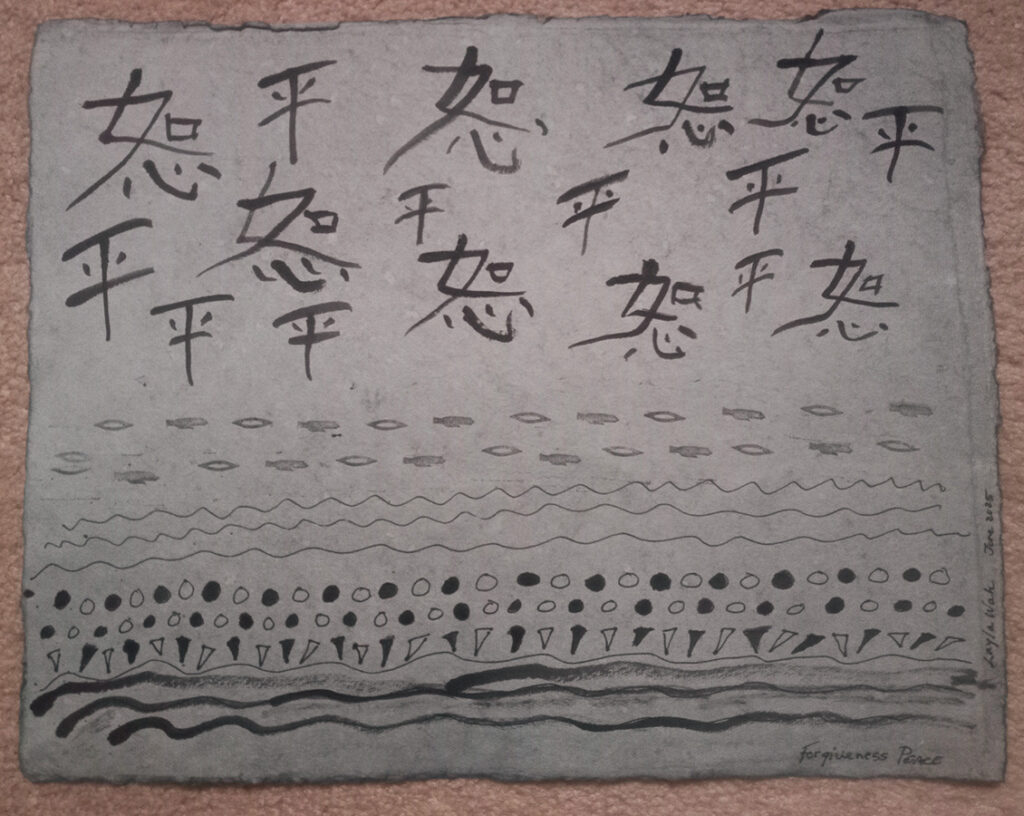 恕 平 恕 恕 恕 平
恕 平 平 平
平 恕 恕 平 恕
平 平
Forgiveness Peace
June 2025